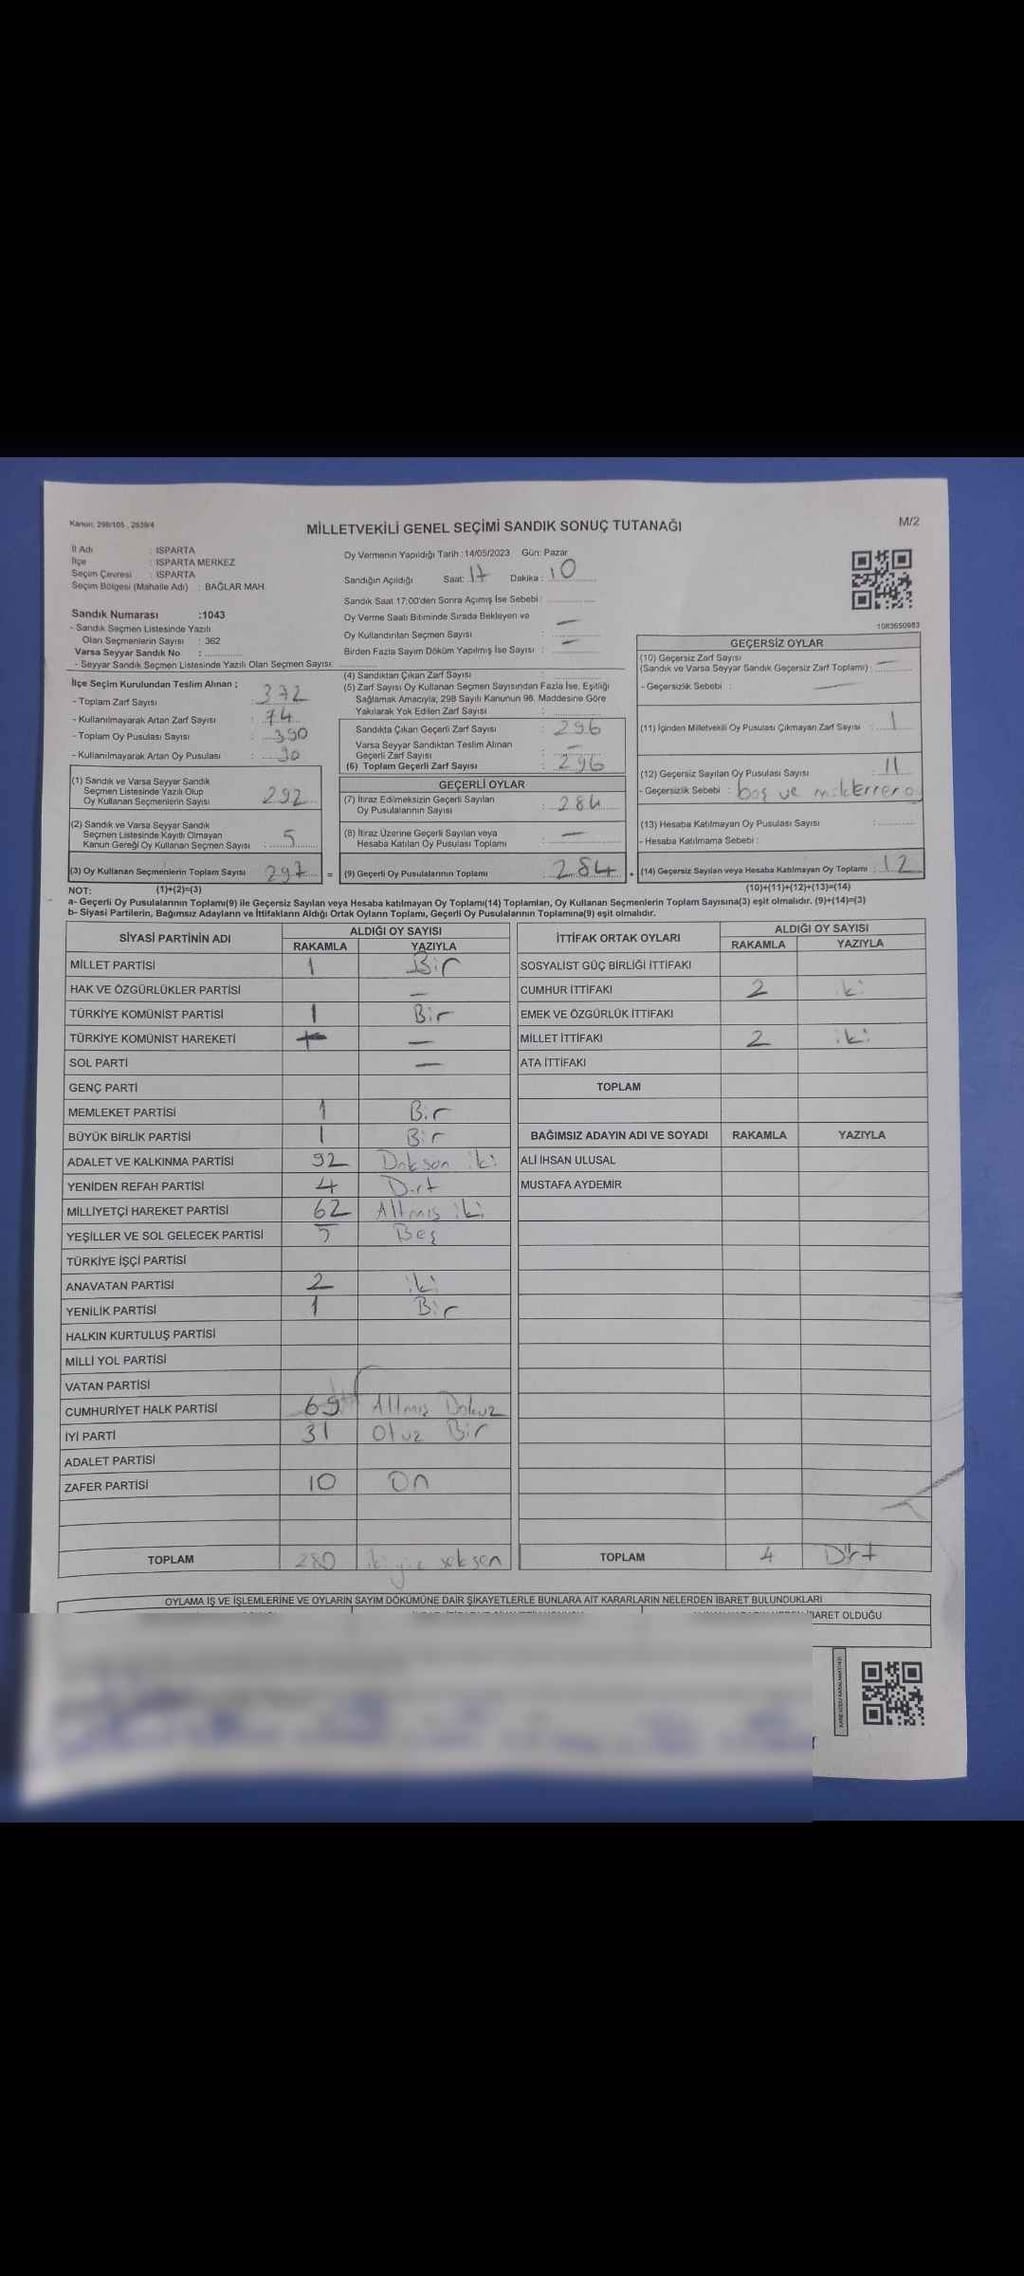 Kanun: 298/105 , 2839/4
MİLLETVEKİLİ GENEL SEÇİMİ SANDIK SONUÇ TUTANAĞI
M/2
İl Adı : ISPARTA
İlçe : ISPARTA MERKEZ
Seçim Çevresi : ISPARTA
Seçim Bölgesi (Mahalle Adı) : BAĞLAR MAH
Sandık Numarası :1043
- Sandık Seçmen Listesinde Yazılı
Olan Seçmenlerin Sayısı : 362
Varsa Seyyar Sandık No :
- Seyyar Sandık Seçmen Listesinde Yazılı Olan Seçmen Sayısı:
Oy Vermenin Yapıldığı Tarih :14/05/2023 Gün: Pazar
Sandığın Açıldığı Saat: 17 Dakika : 10
Sandık Saat 17:00'den Sonra Açımış İse Sebebi :
Oy Verme Saati Bitiminde Sırada Bekleyen ve —
Oy Kullandırılan Seçmen Sayısı :
Birden Fazla Sayım Döküm Yapılmış İse Sayısı : —
1083650983
İlçe Seçim Kurulundan Teslim Alınan ;
- Toplam Zarf Sayısı : 372
- Kullanılmayarak Artan Zarf Sayısı : 74
- Toplam Oy Pusulası Sayısı : 390
- Kullanılmayarak Artan Oy Pusulası : 90
(1) Sandık ve Varsa Seyyar Sandık
Seçmen Listesinde Yazılı Olup
Oy Kullanan Seçmenlerin Sayısı 292
(2) Sandık ve Varsa Seyyar Sandık
Seçmen Listesinde Kayıtlı Olmayan
Kanun Gereği Oy Kullanan Seçmen Sayısı 5
(3) Oy Kullanan Seçmenlerin Toplam Sayısı 297 =
(4) Sandıktan Çıkan Zarf Sayısı :
(5) Zarf Sayısı Oy Kullanan Seçmen Sayısından Fazla İse, Eşitliği
Sağlamak Amacıyla, 298 Sayılı Kanunun 98. Maddesine Göre
Yakılarak Yok Edilen Zarf Sayısı :
Sandıkta Çıkan Geçerli Zarf Sayısı : 296
Varsa Seyyar Sandıktan Teslim Alınan
Geçerli Zarf Sayısı : —
(6) Toplam Geçerli Zarf Sayısı : 296
GEÇERLİ OYLAR
(7) İtiraz Edilmeksizin Geçerli Sayılan
Oy Pusulalarının Sayısı : 284
(8) İtiraz Üzerine Geçerli Sayılan veya
Hesaba Katılan Oy Pusulası Toplamı : —
(9) Geçerli Oy Pusulalarının Toplamı : 284 +
GEÇERSİZ OYLAR
(10) Geçersiz Zarf Sayısı
(Sandık ve Varsa Seyyar Sandık Geçersiz Zarf Toplamı) : —
- Geçersizlik Sebebi : —
(11) İçinden Milletvekili Oy Pusulası Çıkmayan Zarf Sayısı : 1
(12) Geçersiz Sayılan Oy Pusulası Sayısı : 11
- Geçersizlik Sebebi : boş ve
(13) Hesaba Katılmayan Oy Pusulası Sayısı :
- Hesaba Katılmama Sebebi :
(14) Geçersiz Sayılan veya Hesaba Katılmayan Oy Toplamı : 12
NOT: (1)+(2)=(3)
(10)+(11)+(12)+(13)=(14)
a- Geçerli Oy Pusulalarının Toplamı(9) ile Geçersiz Sayılan veya Hesaba katılmayan Oy Toplamı(14) Toplamları, Oy Kullanan Seçmenlerin Toplam Sayısına(3) eşit olmalıdır. (9)+(14)=(3)
b- Siyasi Partilerin, Bağımsız Adayların ve İttifakların Aldığı Ortak Oyların Toplamı, Geçerli Oy Pusulalarının Toplamına(9) eşit olmalıdır.
SİYASİ PARTİNİN ADI ALDIĞI OY SAYISI
RAKAMLA YAZIYLA
MİLLET PARTİSİ 1 Bir
HAK VE ÖZGÜRLÜKLER PARTİSİ —
TÜRKİYE KOMÜNİST PARTİSİ 1 Bir
TÜRKİYE KOMÜNİST HAREKETİ —
SOL PARTİ —
GENÇ PARTİ
MEMLEKET PARTİSİ 1 Bir
BÜYÜK BİRLİK PARTİSİ 1 Bir
ADALET VE KALKINMA PARTİSİ 92 Doksan iki
YENİDEN REFAH PARTİSİ 4 Dört
MİLLİYETÇİ HAREKET PARTİSİ 62 Altmış iki
YEŞİLLER VE SOL GELECEK PARTİSİ 5 Beş
TÜRKİYE İŞÇİ PARTİSİ
ANAVATAN PARTİSİ 2 iki
YENİLİK PARTİSİ 1 Bir
HALKIN KURTULUŞ PARTİSİ
MİLLİ YOL PARTİSİ
VATAN PARTİSİ
CUMHURİYET HALK PARTİSİ 69 Altmış Dokuz
İYİ PARTİ 31 Otuz Bir
ADALET PARTİSİ
ZAFER PARTİSİ 10 On
TOPLAM 280 iki yüz seksen
İTTİFAK ORTAK OYLARI ALDIĞI OY SAYISI
RAKAMLA YAZIYLA
SOSYALİST GÜÇ BİRLİĞİ İTTİFAKI
CUMHUR İTTİFAKI 2 iki
EMEK VE ÖZGÜRLÜK İTTİFAKI
MİLLET İTTİFAKI 2 iki
ATA İTTİFAKI
TOPLAM
BAĞIMSIZ ADAYIN ADI VE SOYADI RAKAMLA YAZIYLA
ALİ İHSAN ULUSAL
MUSTAFA AYDEMİR
TOPLAM 4 Dört
OYLAMA İŞ VE İŞLEMLERİNE VE OYLARIN SAYIM DÖKÜMÜNE DAİR ŞİKAYETLERLE BUNLARA AİT KARARLARIN NELERDEN İBARET BULUNDUKLARI
İBARET OLDUĞU